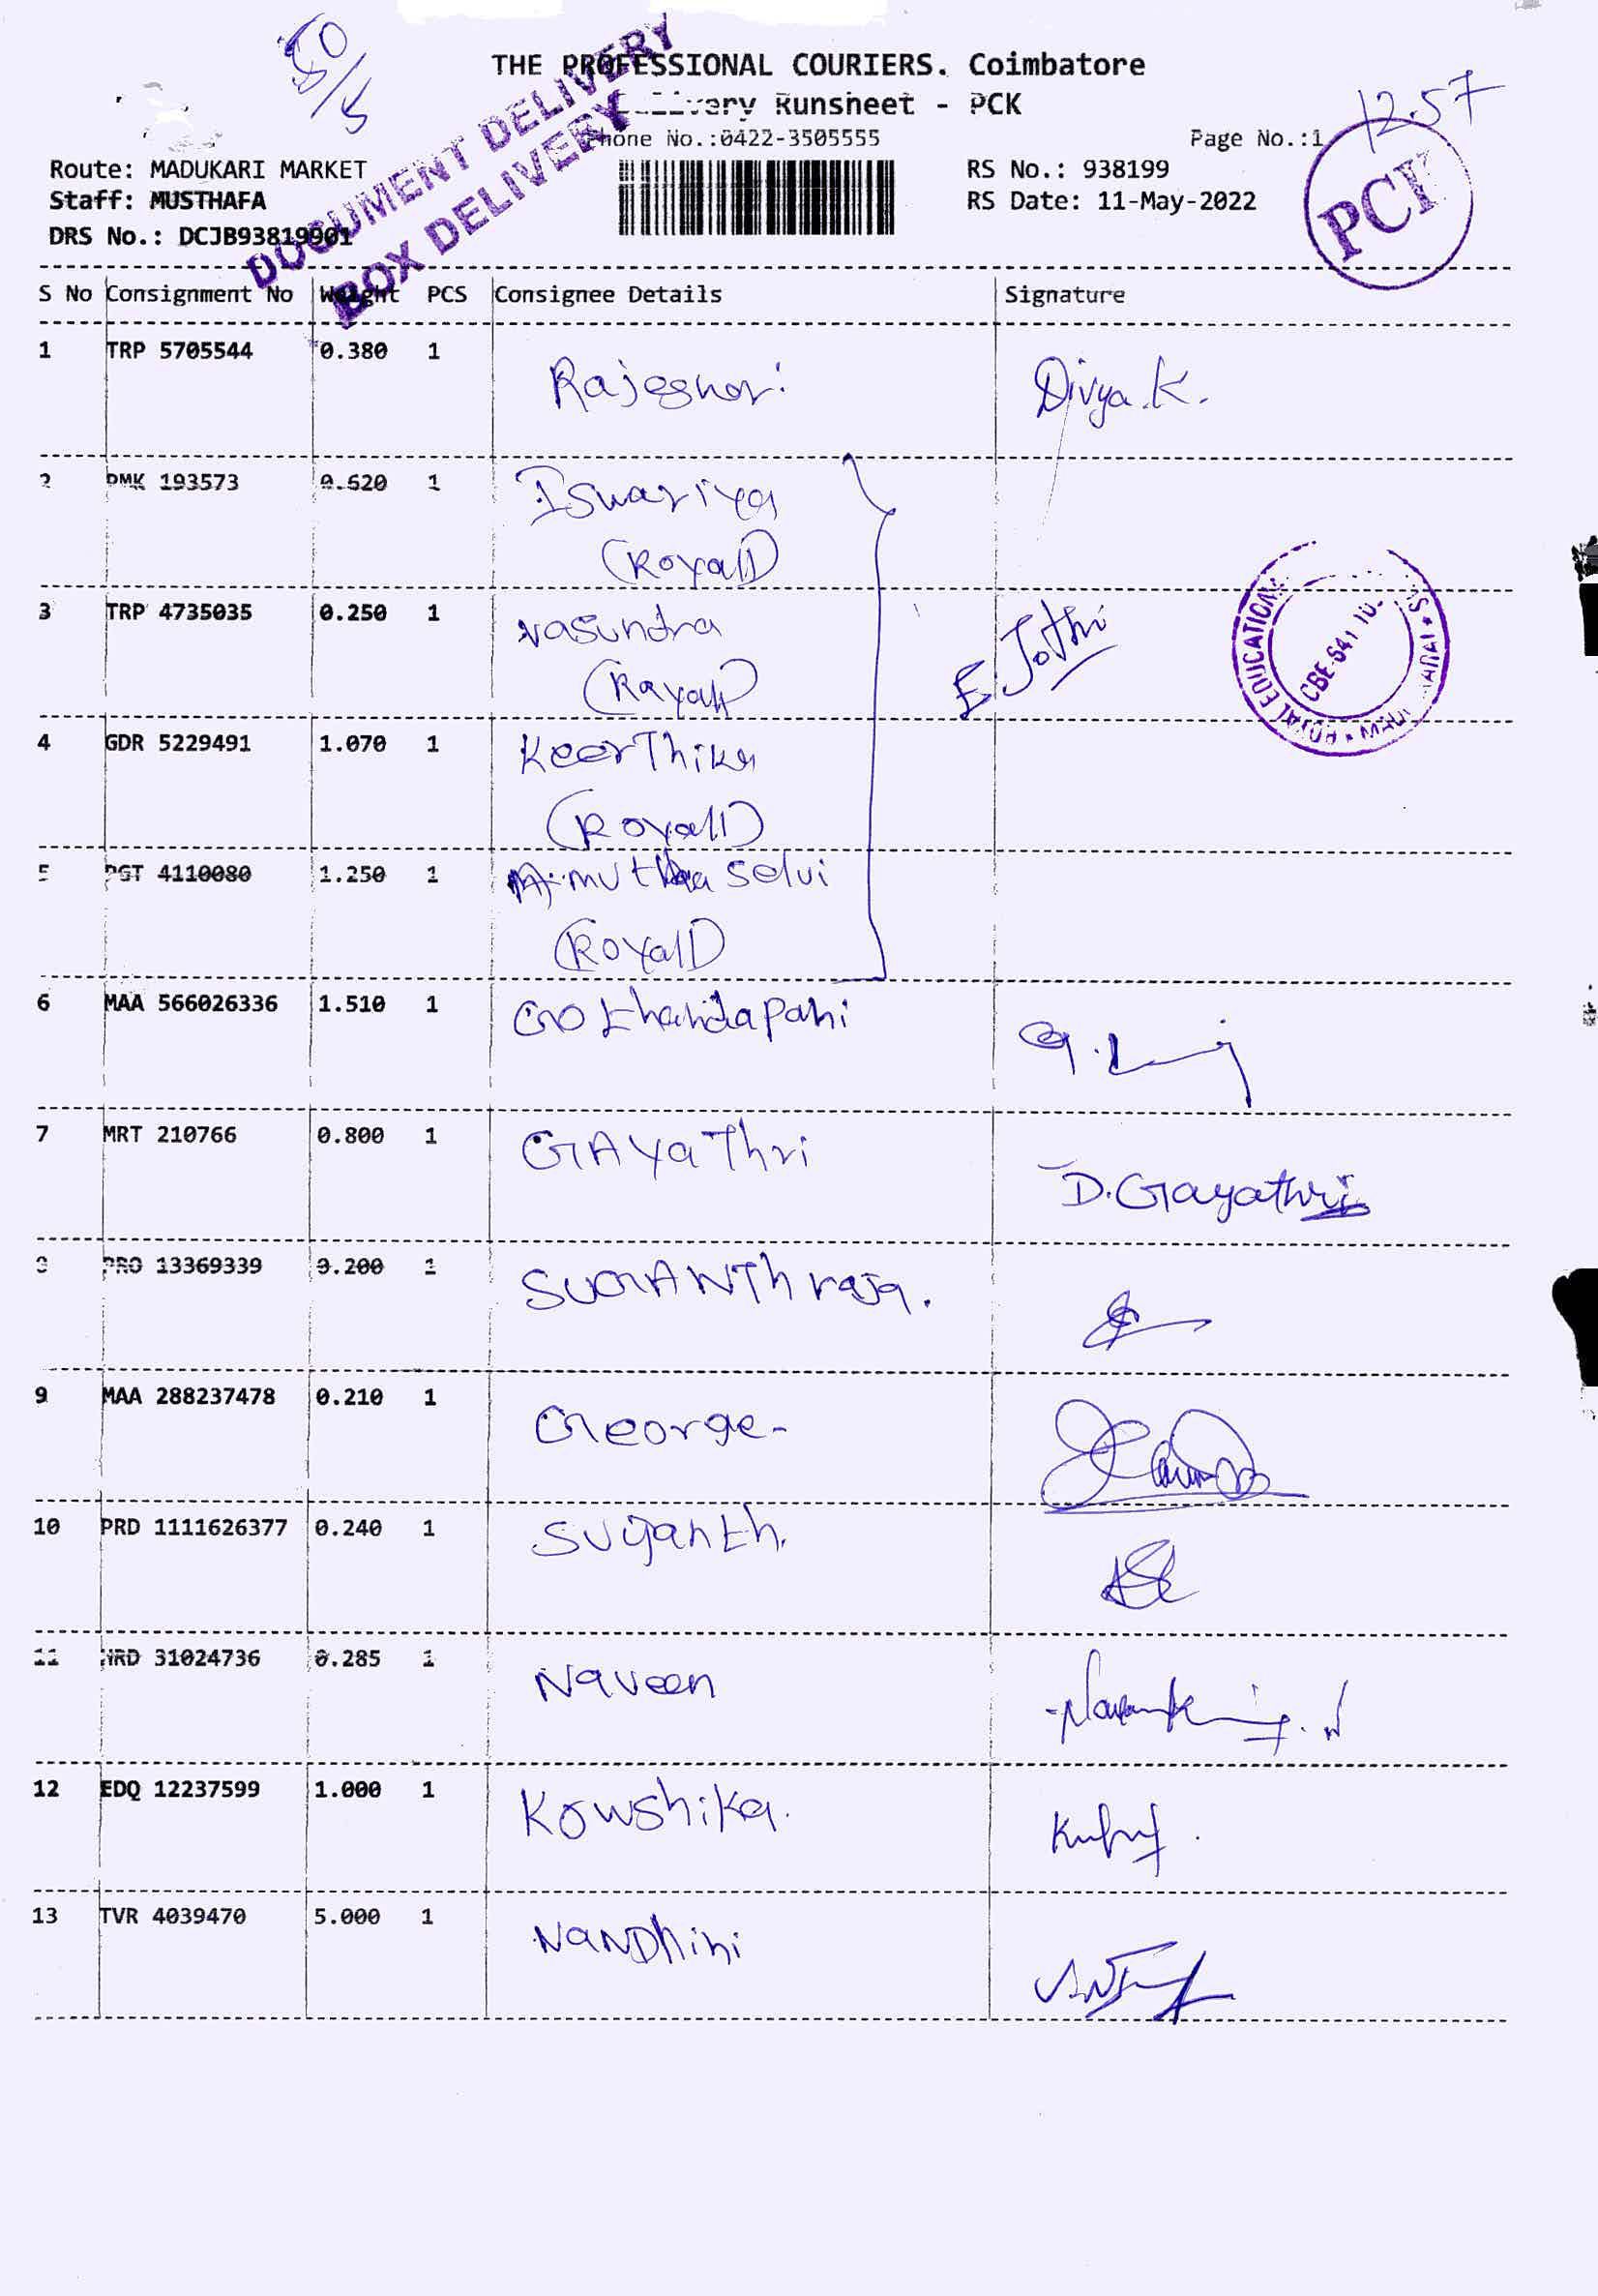 50/5
THE PROFESSIONAL COURIERS. Coimbatore
Runsheet - PCK
Phone No.:0422-3505555
Page No.:1
12.57
Route: MADUKARI MARKET
RS No.: 938199
Staff: MUSTHAFA
RS Date: 11-May-2022
DRS No.: DCJB93819901
DOCUMENT DELIVERY
BOX DELIVERY
PCK
S No Consignment No Weight PCS Consignee Details Signature
1 TRP 5705544 0.380 1 Rajeshori Divya.K.
2 PMK 193573 0.620 1 Iswariya
(Royal)
3 TRP 4735035 0.250 1 Vasundra
(Rayal)
E Jothi
4 GDR 5229491 1.070 1 Keerthika
(Royal)
5 PGT 4110080 1.250 1 Amutha Selvi
(Royal)
ROYAL EDUCATION
CBE-641 10
6 MAA 566026336 1.510 1
7 MRT 210766 0.800 1 GAYaThri D.Gayathri
8 PRO 13369339 0.200 1
9 MAA 288237478 0.210 1 George-
10 PRD 1111626377 0.240 1 Sujanth.
11 31024736 0.285 1 Naveen
12 EDQ 12237599 1.000 1 Kowshika.
13 TVR 4039470 5.000 1 NaNDhini